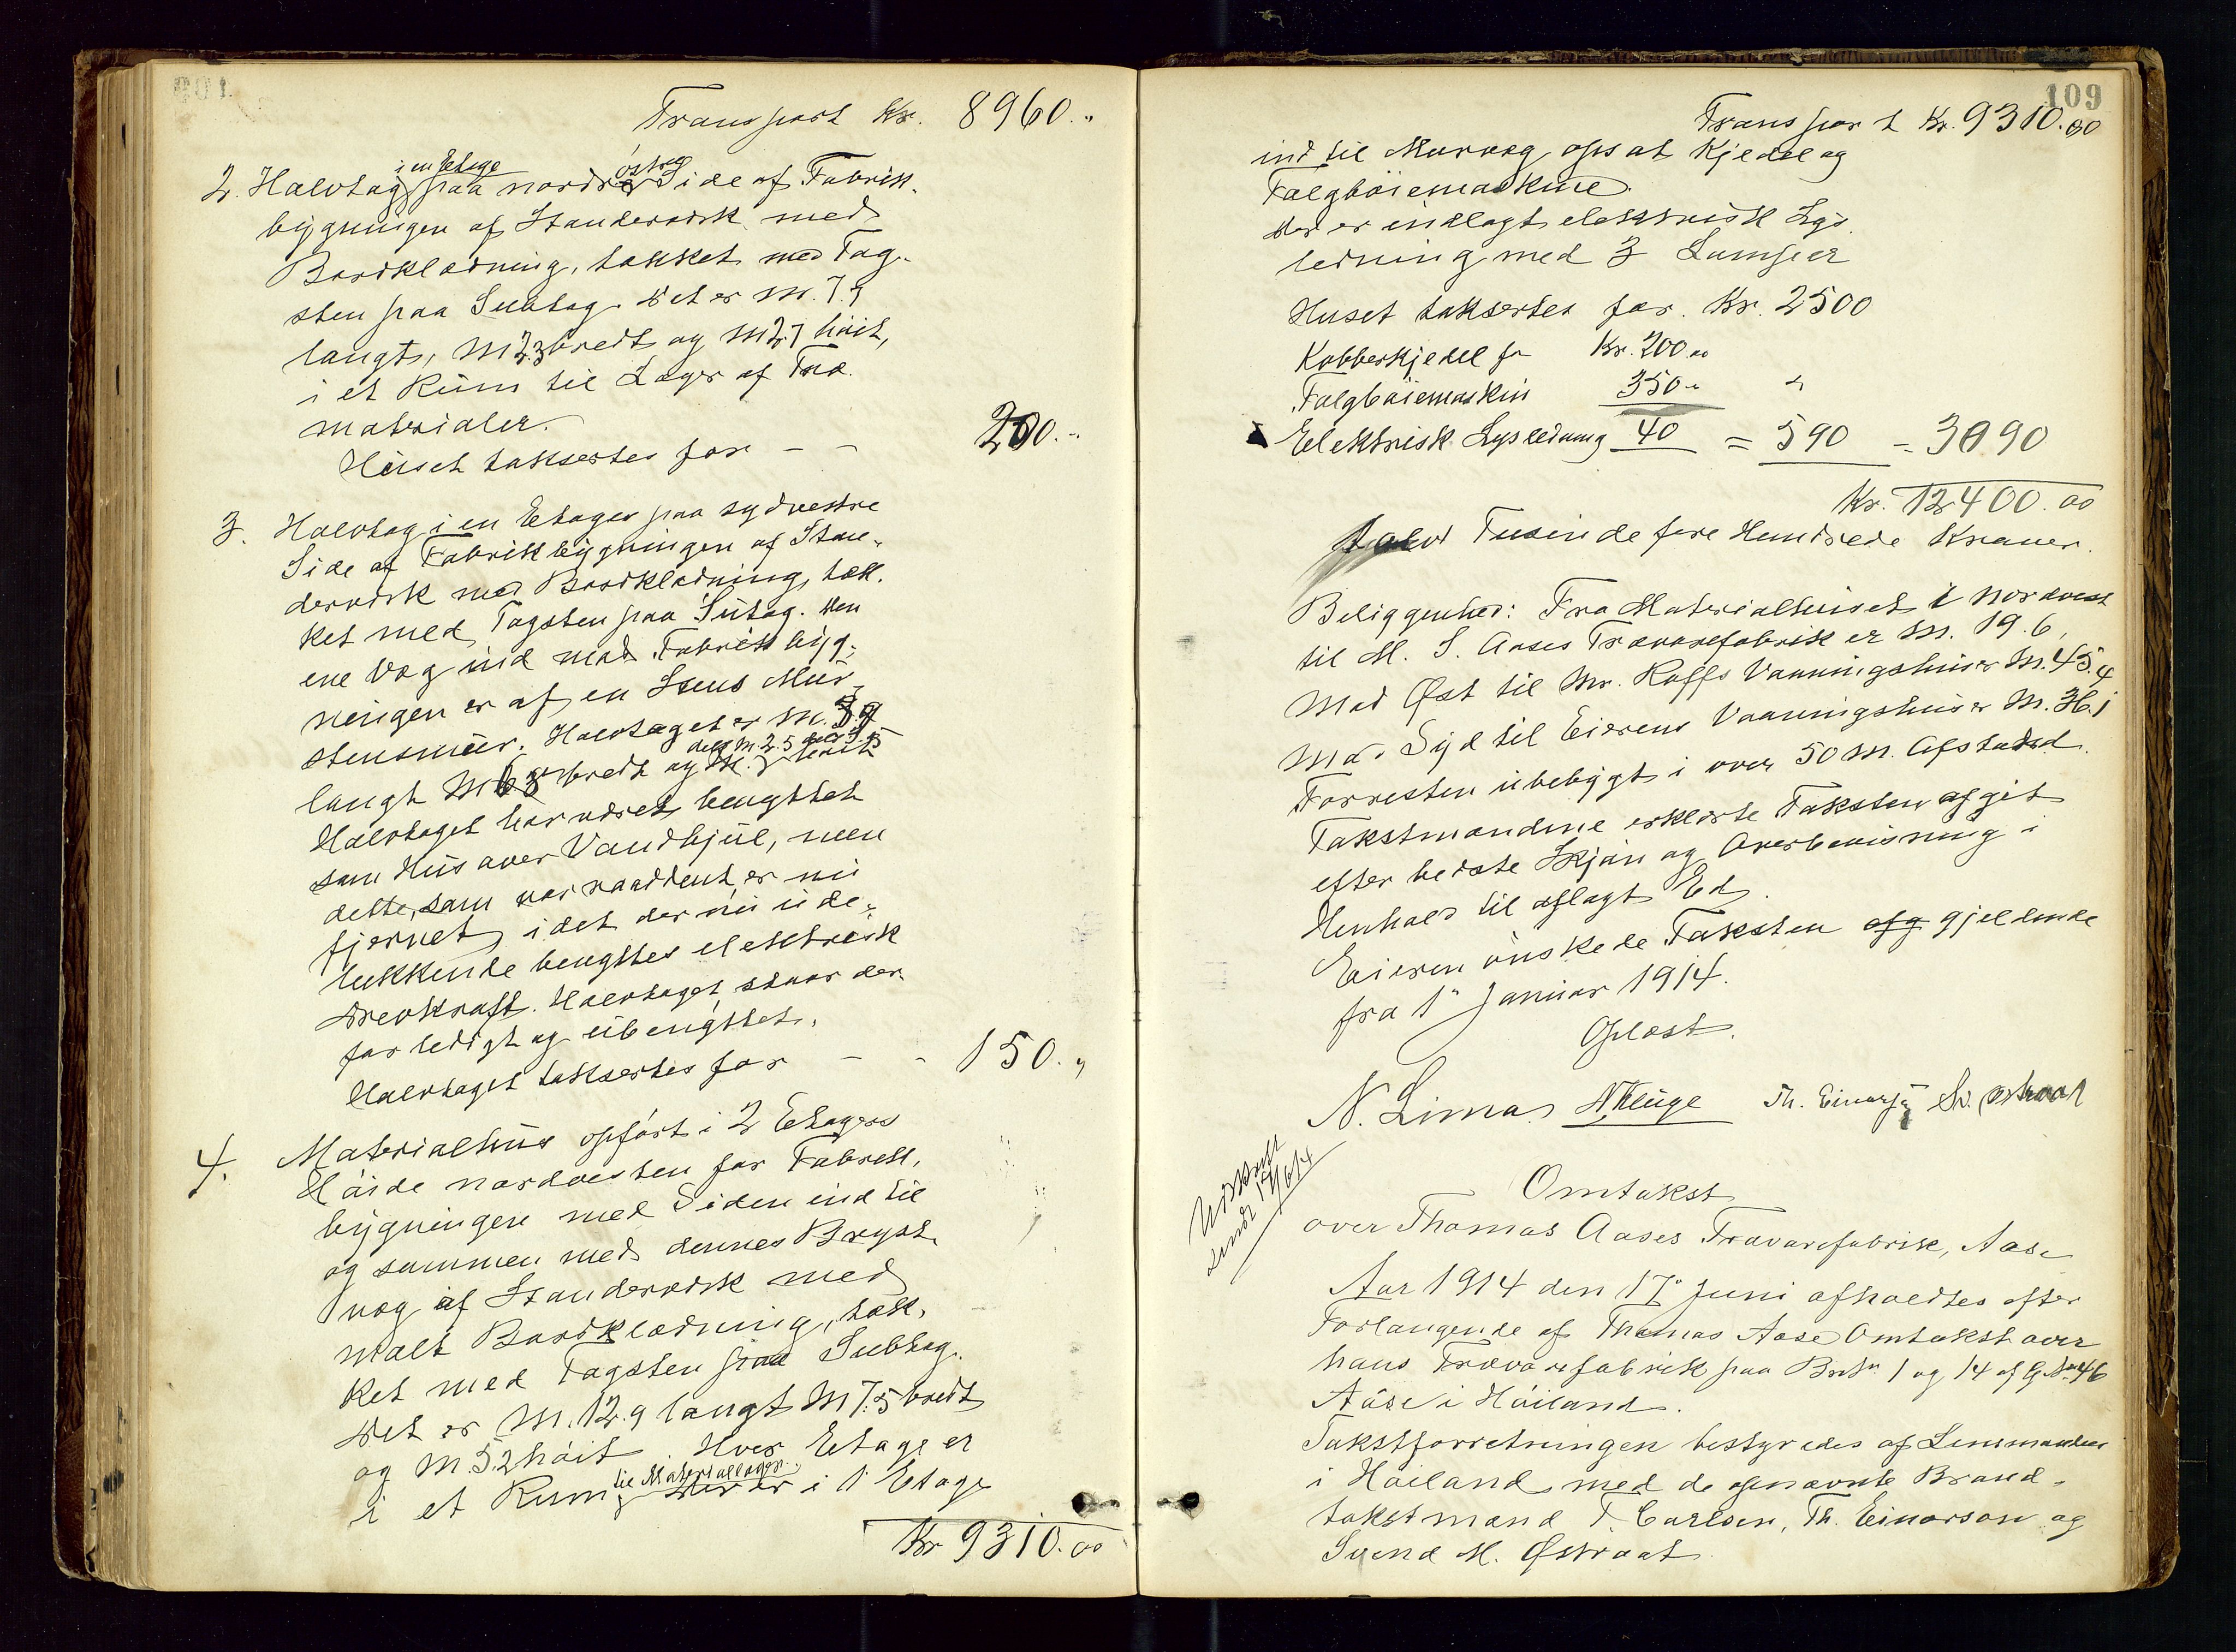 Transport Kr. 8960.„
2. Halvtag i en Etage paa nordøstre Side af Fabrik-
bygningen af Standerværk med
Bordklædning, tækket med Tag-
sten paa Subtag. Det er M. 7.9
langt, M 2.3 bredt og M 2.7 høit,
i et Rum til Lager af Træ-
materialer.
Huset takseres for – – 200.–
3. Halvtag i en Etages paa sydvestre
Side af Fabrikbygningen af Stan-
derværk med Bordklædning, tæk-
ket med Tagsten paa Sutag. Den
ene Væg ind mod Fabrikbyg-
ningen er af en Stens Mur-
stensmur. Halvtaget er M.
langt M bredt og M. høit
Halvtaget har været benyttet
som Hus over Vandhjul, men
dette, som var raaddent, er nu
fjernet, idet der nu ude-
lukkende benyttes elektrisk
Drevkraft. Halvtaget staar der-
for ledigt og ubenyttet.
Halvtaget takseres for – – 150.„
4. Materialhus opført i 2 Etagers
Høide nordvesten for Fabrik-
bygningen med Siden ind til
og sammen med dennes Bryst-
væg af Standerværk med
malt Bordklædning, tæk-
ket med Tagsten paa Subtag.
Det er M. 12.9 langt M 7.5 bredt
og M. 5.2 høit. Hver Etage er
i et Rum til Materiallager. Der er i 1 Etage
Kr 9310.00
109
Transport Kr. 9310.00
ind til Murvæg opsat Kjedel og
Fælgbøiemaskine.
Der er indlagt elektrisk Lys-
ledning med 3 Lamper
Huset takseres for. Kr. 2500
Kobberkjedel for Kr. 200.00
Fælgbøiemaskin 350 „ „
Elektrisk Lysledning 40 = 590 – 3090
Kr. 12400.00
Tolv Tusinde fire Hundrede Kroner.
Beliggenhed: Fra Materialhuset i nordvest
til M. S. Aases Trævarefabrik er M. 19.6,
Mod Øst til Mr. Roffs Vaaningshus er M. 45.4
Mod Syd til Eierens Vaaningshus er M. 36.1
Forresten ubebygt i over 50 M. Afstand.
Takstmændene erklærte Taksten afgit
efter bedste Skjøn og Overbevisning i
Henhold til aflagt Ed.
Eieren ønskede Taksten afg gjeldende
fra 1" Januar 1914.
Oplæst.
N. Lima N Kluge Th. Einarson
Udskrift
sendt 17/6 14
Omtakst
over Thomas Aases Trævarefabrik, Aase
Aar 1914 den 17" Juni afholdtes efter
Forlangende af Thomas Aase Omtakst over
hans Trævarefabrik paa Brn. 1 og 14 af G.N. 46
Aase i Høiland.
Takstforretningen bestyredes af Lensmanden
i Høiland med de opnævnte Brand-
takstmænd T. Carlsen, Th. Einarson og
Svend M. Østraat